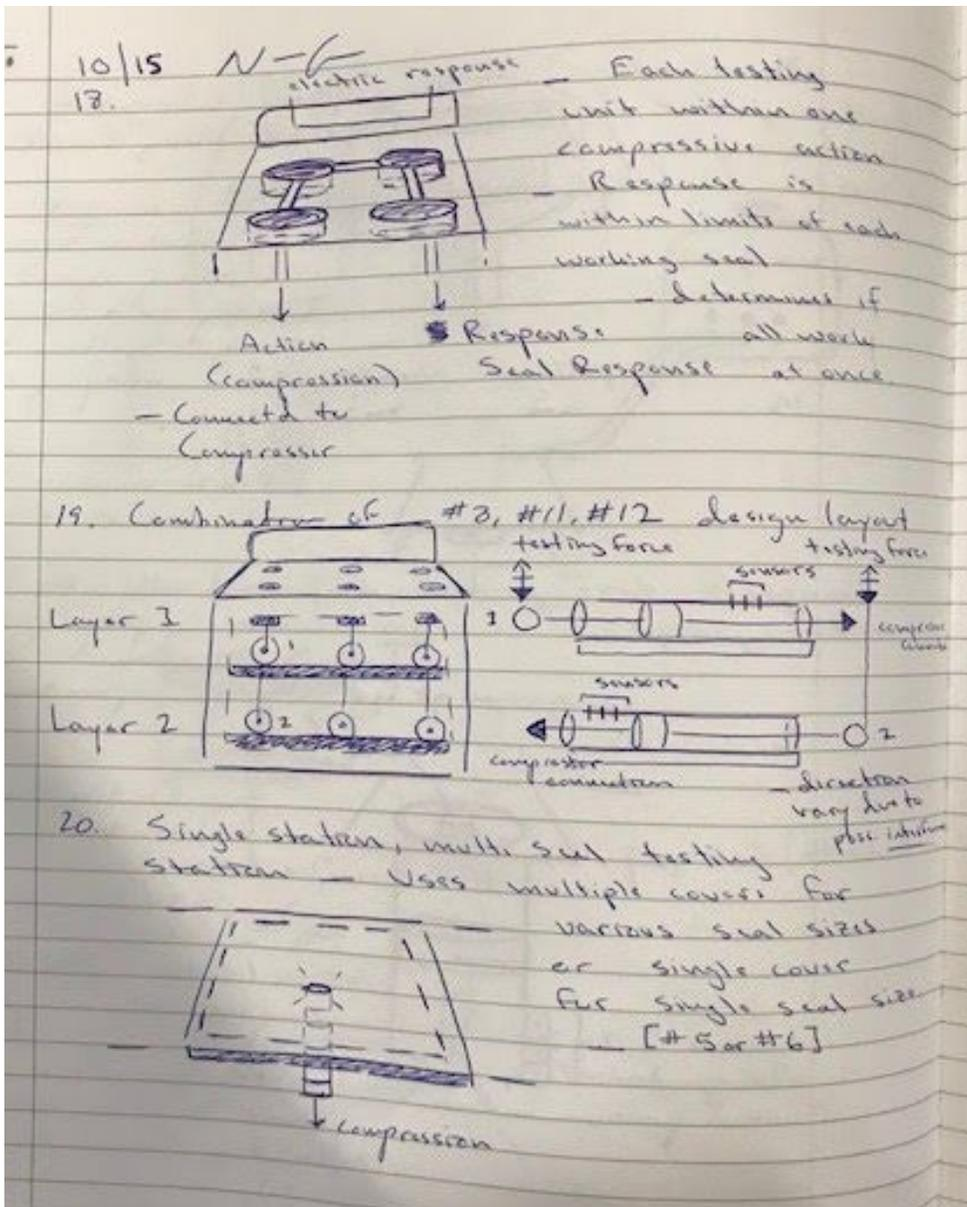 10/15 N-G
18.
electric response
- Each testing
unit within one
compressive action
- Response is
within limits of each
working seal
- determines if
all work
at once
Action
(compression)
- Connectd to
Compressor
Response
Seal Response
19. Combination of #3, #11, #12 design layout
testing force
testing force
sensors
Layer 1
1
1
Layer 2
2
sensors
2
compressor
connection
- direction
vary due to
20. Single station, multi seal testing
station - Uses multiple covers for
various seal sizes
or single cover
for single seal size
- [#5 or #6]
compression